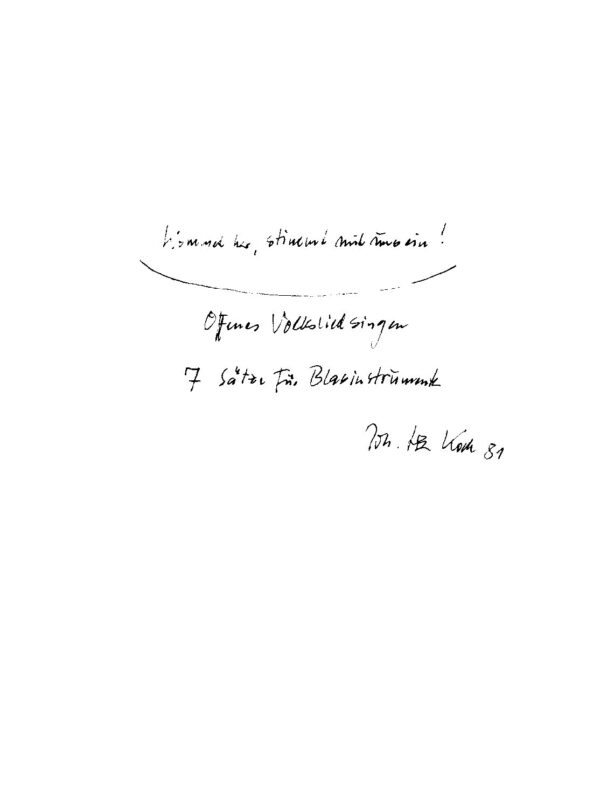 Kommet her, stimmt mit uns ein!
Offenes Volksliedsingen
7 Sätze für Blasinstrumente
Joh. H.E. Koch 81